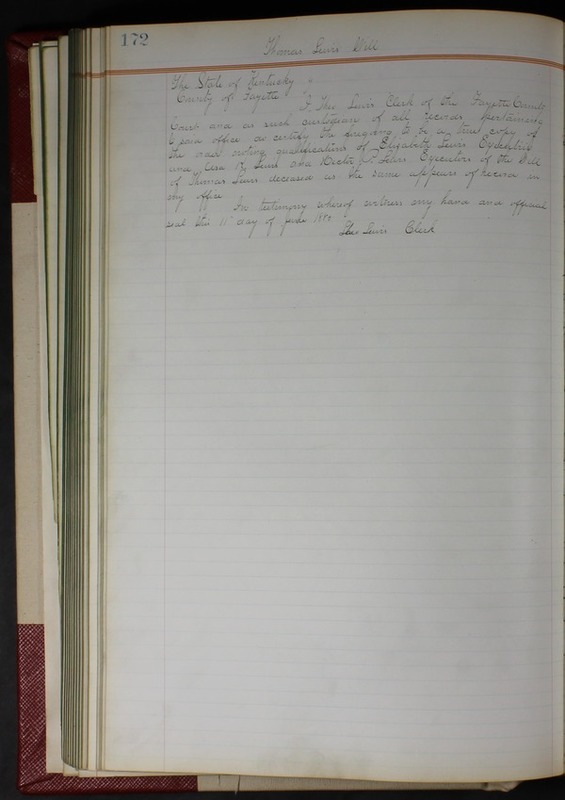 172
Thomas Lewis Will
The State of Kentucky
County of Fayette I Theo Lewis Clerk of the Fayette County
Court and as such custodian of all records pertaining
to said office do certify the foregoing to be a true copy of
the order noting qualifications of Elizabeth Lewis Executrix
and Asa K Lewis and Hector P. Lewis Executors of the Will
of Thomas Lewis deceased as the same appears of record in
my office
In testimony whereof witness my hand and official
seal this 11 day of June
Theo Lewis Clerk